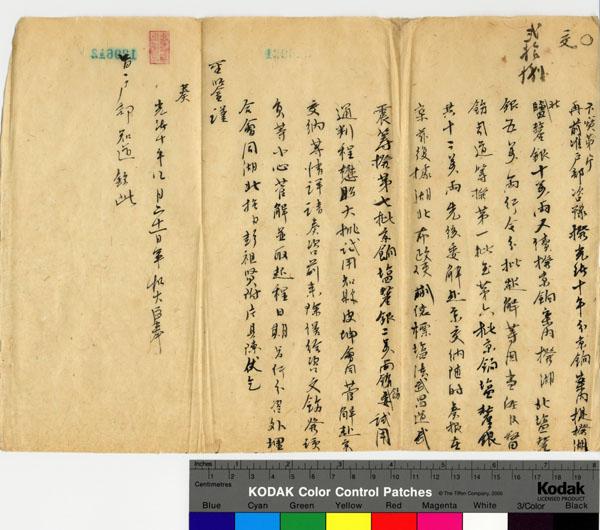 交
卞寶第片
再前准戶部咨豫撥光緒十年分京餉案內提撥湖
北鹽釐銀十萬兩又續撥京餉案內撥湖北鹽釐
銀五萬兩行令分批報解等因當經
飭司道籌撥第一批至第六批京餉鹽釐銀
共十二萬兩先後委解赴京交納隨時奏報在
案茲復據湖北布政使蒯德標鹽法武昌道武
震籌撥第七批京餉鹽釐銀二萬兩飭委試用
通判程懋昭大挑試用知縣皮坤會同管解赴京
交納等情詳請奏咨前來除繕給咨文飭發該
員等小心管解並取起程日期另行分咨外理
合會同湖北撫臣彭祖賢附片具陳伏乞
聖鑒謹
奏
光緒十年 月二十一日軍機大臣奉
旨戶部知道欽此
Inches
Centimetres
1 2 3 4 5 6 7 8
1 2 3 4 5 6 7 8 9 10 11 12 13 14 15 16 17 18 19
KODAK Color Control Patches
© The Tiffen Company, 2000
Kodak
LICENSED PRODUCT
Blue Cyan Green Yellow Red Magenta White 3/Color Black